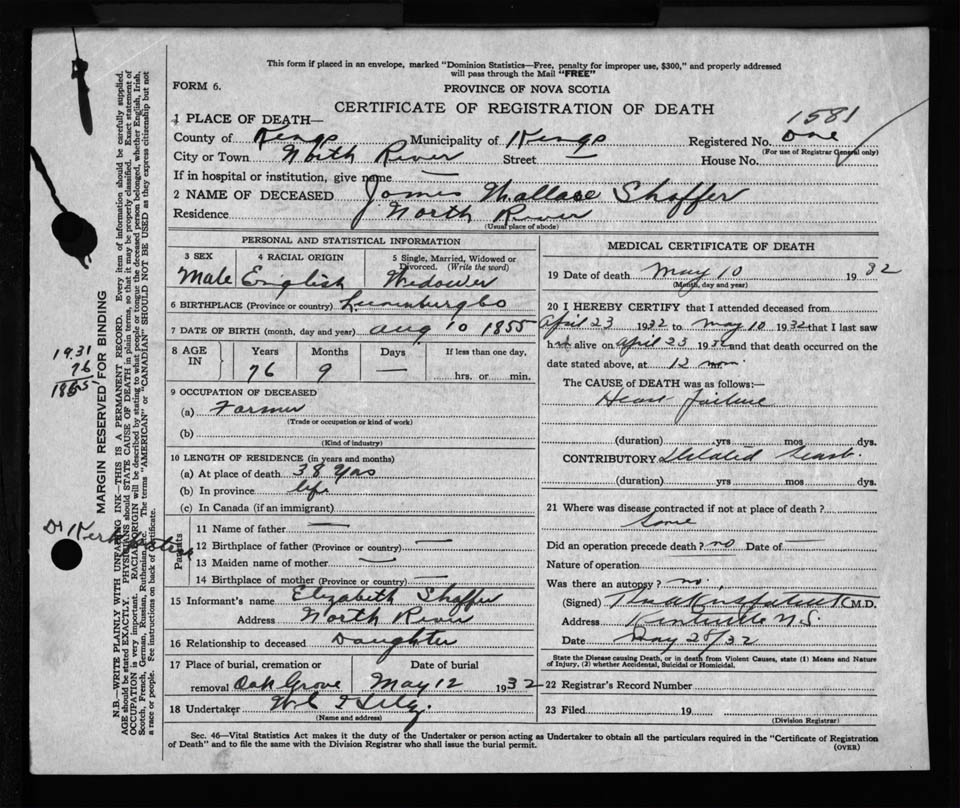 This form if placed in an envelope, marked "Dominion Statistics—Free, penalty for improper use, $300," and properly addressed
will pass through the Mail "FREE"
FORM 6.
PROVINCE OF NOVA SCOTIA
CERTIFICATE OF REGISTRATION OF DEATH
1581
1 PLACE OF DEATH—
County of Kings Municipality of Kings Registered No. One
(For use of Registrar General only)
City or Town North River Street — House No.
If in hospital or institution, give name —
2 NAME OF DECEASED James Wallace Shaffer
Residence North River
(Usual place of abode)
PERSONAL AND STATISTICAL INFORMATION
3 SEX 4 RACIAL ORIGIN 5 Single, Married, Widowed or Divorced. (Write the word)
Male English Widower
6 BIRTHPLACE (Province or country) Lunenburg Co
7 DATE OF BIRTH (month, day and year) Aug 10 1855
8 AGE IN Years Months Days If less than one day,
76 9 — hrs. or min.
9 OCCUPATION OF DECEASED
(a) Farmer
(Trade or occupation or kind of work)
(b)
(Kind of industry)
10 LENGTH OF RESIDENCE (in years and months)
(a) At place of death 38 yrs
(b) In province life
(c) In Canada (if an immigrant)
Parents
11 Name of father —
12 Birthplace of father (Province or country) —
13 Maiden name of mother —
14 Birthplace of mother (Province or country) —
15 Informant's name Elizabeth Shaffer
Address North River
16 Relationship to deceased Daughter
17 Place of burial, cremation or Date of burial
removal Oak Grove May 12 1932
18 Undertaker
(Name and address)
MEDICAL CERTIFICATE OF DEATH
19 Date of death May 10 1932
(Month, day and year)
20 I HEREBY CERTIFY that I attended deceased from
April 23 1932 to May 10 1932 that I last saw
h alive on April 23 193 and that death occurred on
date stated above, at 12 m.
The CAUSE of DEATH was as follows:—
Heart Failure
(duration) yrs mos dys.
CONTRIBUTORY Dilated Heart
(duration) yrs mos dys.
21 Where was disease contracted if not at place of death?
Same
Did an operation precede death? no Date of —
Nature of operation
Was there an autopsy? no.
(Signed) M.D.
Address Kentville N.S.
Date May 28/32
State the Disease causing Death, or in death from Violent Causes, state (1) Means and Nature
of Injury, (2) whether Accidental, Suicidal or Homicidal.
22 Registrar's Record Number
23 Filed 19
(Division Registrar)
Sec. 46—Vital Statistics Act makes it the duty of the Undertaker or person acting as Undertaker to obtain all the particulars required in the "Certificate of Registration
of Death" and to file the same with the Division Registrar who shall issue the burial permit.
(OVER)
MARGIN RESERVED FOR BINDING
N.B.—WRITE PLAINLY WITH UNFADING INK—THIS IS A PERMANENT RECORD. Every item of information should be carefully supplied.
AGE should be stated EXACTLY. PHYSICIANS should STATE CAUSE OF DEATH in plain terms, so that it may be properly classified. Exact statement of
OCCUPATION is very important. RACIAL ORIGIN will be described by stating to what people or tongue the deceased person belonged, whether English, Irish,
Scotch, French, German, Russian, Ruthenian, etc. The terms "AMERICAN" or "CANADIAN" SHOULD NOT BE USED as they express citizenship but not
a race or people. See instructions on back of Certificate.
1931
76
1855